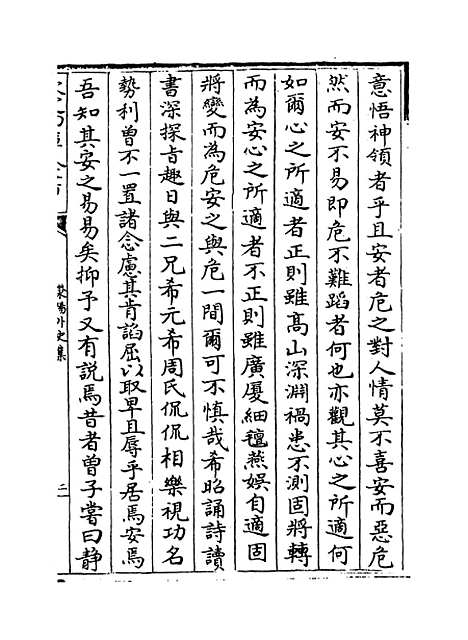 意悟神領者乎且安者危之對人情莫不喜安而惡危
然而安不易即危不難蹈者何也亦觀其心之所適何
如爾心之所適者正則雖髙山深淵禍患不測固將轉
而為安心之所適者不正則雖廣廈細氊燕娯自適固
將變而為危安之與危一間爾可不慎哉希昭誦詩讀
書深探㫖趣日與二兄希元希周氏侃侃相樂視功名
勢利曽不一置諸念慮其肯謟屈以取卑且辱乎居焉安焉
吾知其安之易易矣抑予又有説焉昔者曽子嘗曰静
滎陽外史集
二